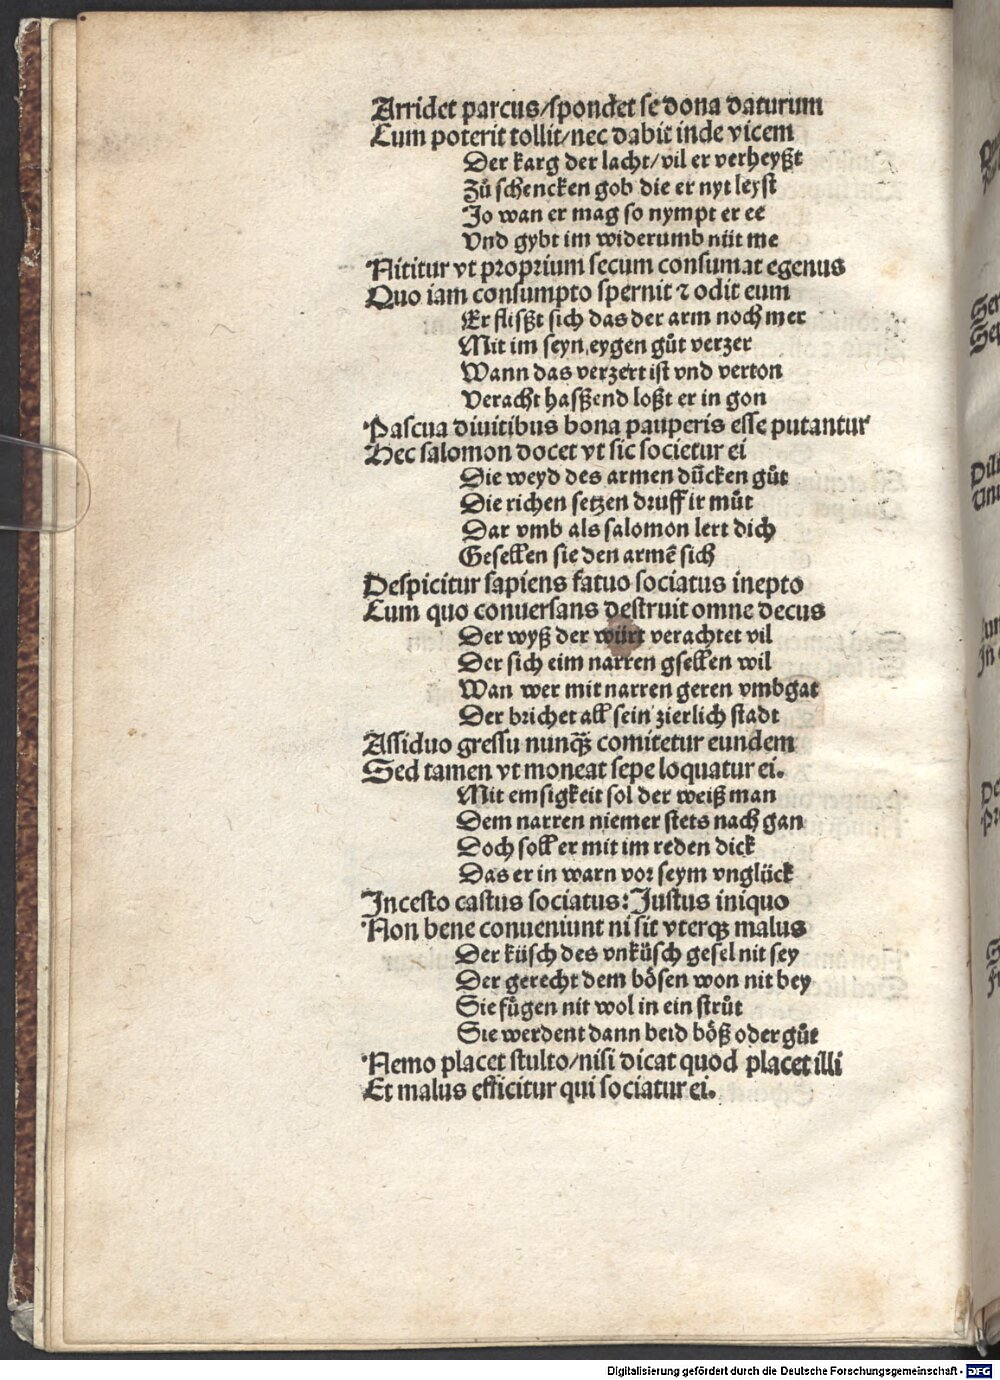 Arridet parcus/spondet se dona daturum
Cum poterit tollit/nec dabit inde vicem
Der karg der lacht/vil er verheyßt
Zů schencken gob die er nyt leyst
Jo wan er mag so nympt er ee
Vnd gybt im widerumb nüt me
Nititur vt proprium secum consumat egenus
Quo iam consumpto spernit ⁊ odit eum
Er flißt sich das der arm noch mer
Mit im seyn eygen gůt verzer
Wann das verzert ist vnd verton
Veracht hassend loßt er in gon
Pascua diuitibus bona pauperis esse putantur
Hec salomon docet vt sic societur ei
Die weyd des armen dücken gůt
Die richen setzen druff ir můt
Dar vmb als salomon lert dich
Gesellen sie den armē sich
Despicitur sapiens fatuo sociatus inepto
Cum quo conuersans destruit omne decus
Der wyß der würt verachtet vil
Der sich eim narren gsellen wil
Wan wer mit narren geren vmbgat
Der brichet all sein zierlich stadt
Assiduo gressu nunqȝ comitetur eundem
Sed tamen vt moneat sepe loquatur ei.
Mit emsigkeit sol der weiß man
Dem narren niemer stets nach gan
Doch soll er mit im reden dick
Das er in warn vor seym vnglück
Incesto castus sociatus: Justus iniquo
Non bene conueniunt ni sit vterqȝ malus
Der küsch des vnküsch gesel nit sey
Der gerecht dem bösen won nit bey
Sie fůgen nit wol in ein strůt
Sie werdent dann beid böß oder gůt
Nemo placet stulto/nisi dicat quod placet illi
Et malus efficitur qui sociatur ei.
Digitalisierung gefördert durch die Deutsche Forschungsgemeinschaft - DFG